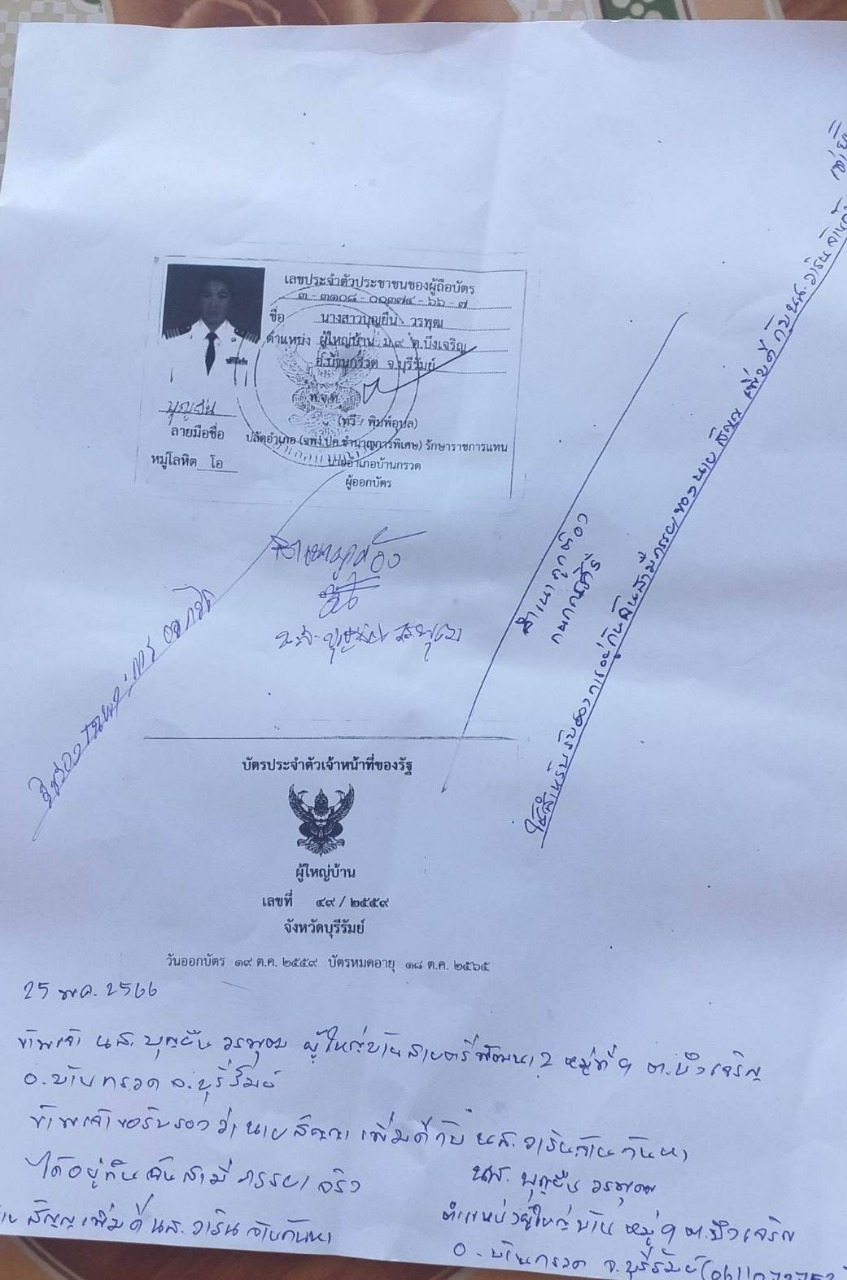 เลขประจำตัวประชาชนของผู้ถือบัตร
๓ - ๓๑๐๘ - ๐๐๓๗๔ - ๖๖ - ๗
ชื่อ นางสาวบุญยืน วรพุฒ
ตำแหน่ง ผู้ใหญ่บ้าน ม.๙ ต.บึงเจริญ
อ.บ้านกรวด จ.บุรีรัมย์
พ.จ.ต.
(ทวี พิมพ์อุบล)
ปลัดอำเภอ (จพง.ปค.ชำนาญการพิเศษ) รักษาราชการแทน
นายอำเภอบ้านกรวด
ผู้ออกบัตร
บุญยืน
ลายมือชื่อ
หมู่โลหิต โอ
สำเนาถูกต้อง
น.ส. บุญยืน วรพุฒ
สำเนาถูกต้อง
ใช้สำหรับรับรองการอยู่กินฉันสามีภรรยาของนาย สัญญา เพิ่มดี กับ นส.วาริน
บัตรประจำตัวเจ้าหน้าที่ของรัฐ
ผู้ใหญ่บ้าน
เลขที่ ๔๙ / ๒๕๕๙
จังหวัดบุรีรัมย์
วันออกบัตร ๑๙ ต.ค. ๒๕๕๙ บัตรหมดอายุ ๑๘ ต.ค. ๒๕๖๕
25 พค. 2566
ข้าพเจ้า นส. บุญยืน วรพุฒ ผู้ใหญ่บ้านสายตรีพัฒนา 2 หมู่ที่ 9 ต.บึงเจริญ
อ.บ้านกรวด จ.บุรีรัมย์
ข้าพเจ้าขอรับรองว่านายสัญญา เพิ่มดี กับ นส.วาริน
ได้อยู่กินฉันสามีภรรยาจริง
นส. บุญยืน วรพุฒ
สัญญา เพิ่มดี นส.วาริน
ตำแหน่งผู้ใหญ่บ้าน หมู่ 9 ต.บึงเจริญ
อ.บ้านกรวด จ.บุรีรัมย์